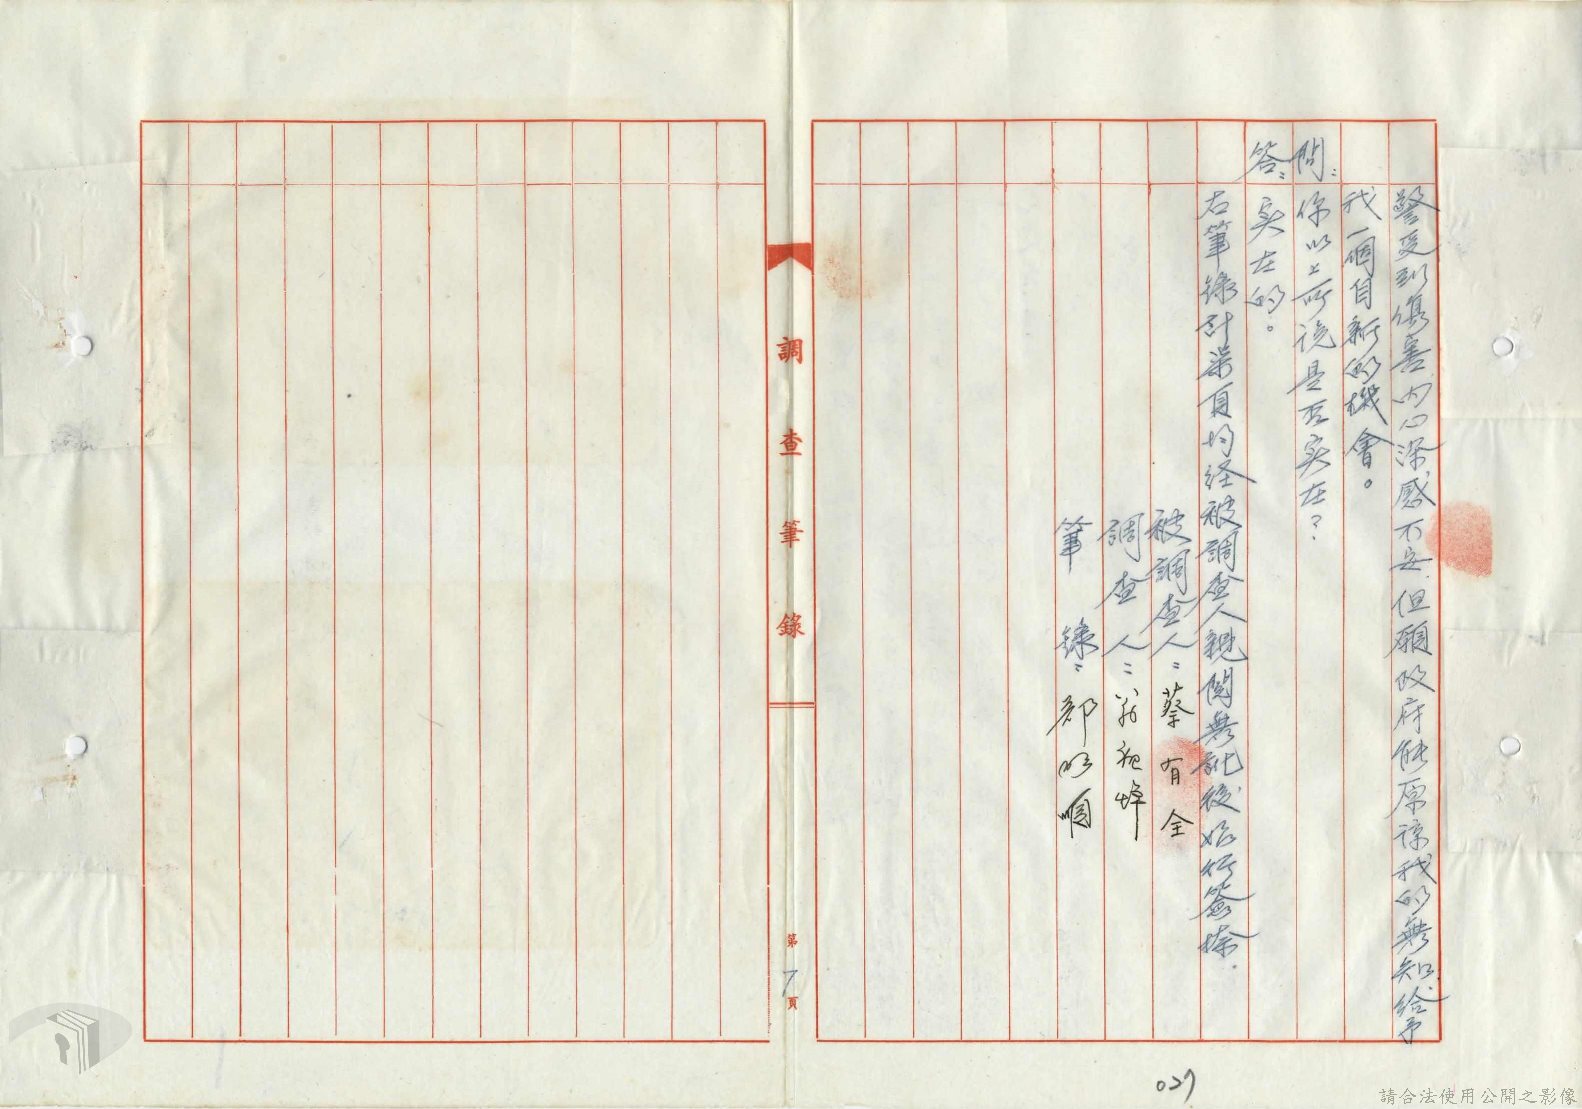 警受到傷害內心深感不安，但願政府能原諒我的無知，給予
我一個自新的機會。
問：你以上所说是否实在？
答：实在的。
右筆錄計柒頁均経被調查人親閱無訛後始行簽捺。
被調查人：蔡有全
調查人：翁祖焯
筆錄：郝以順
調查筆錄
第7頁
027
請合法使用公開之影像